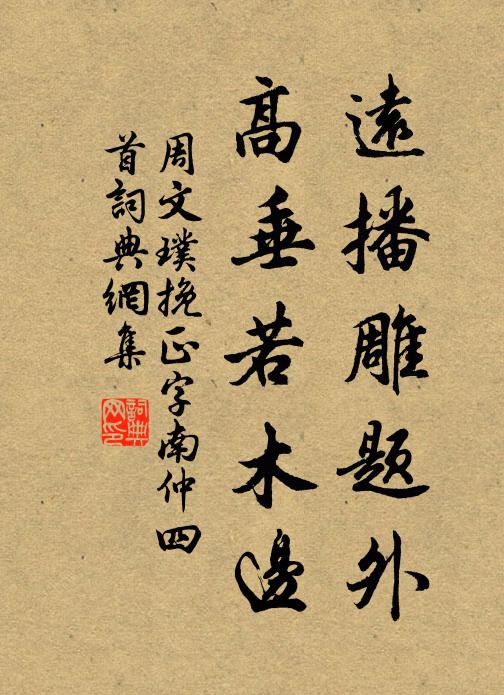 遠播雕題外
高垂若木邊
周文璞挽正字南仲四
首詞典網集
詞典
网印